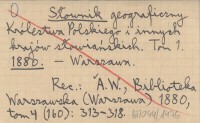 Słownik geograficzny
Królestwa Polskiego i innych
krajów słowiańskich. Tom 1.
1880. – Warszawa.
Rec.: A.W., Biblioteka
Warszawska (Warszawa) 1880,
tom 4 (160): 313-318.